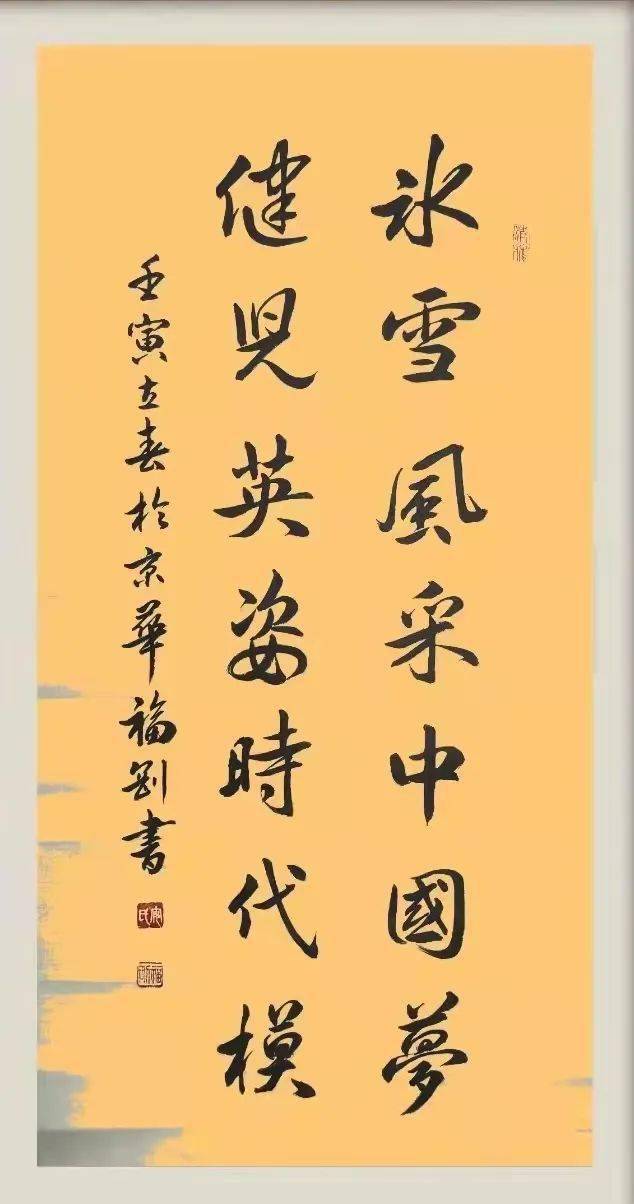 氷雪風采中國夢
健児英姿時代模
壬寅立春於京華福書
安氏